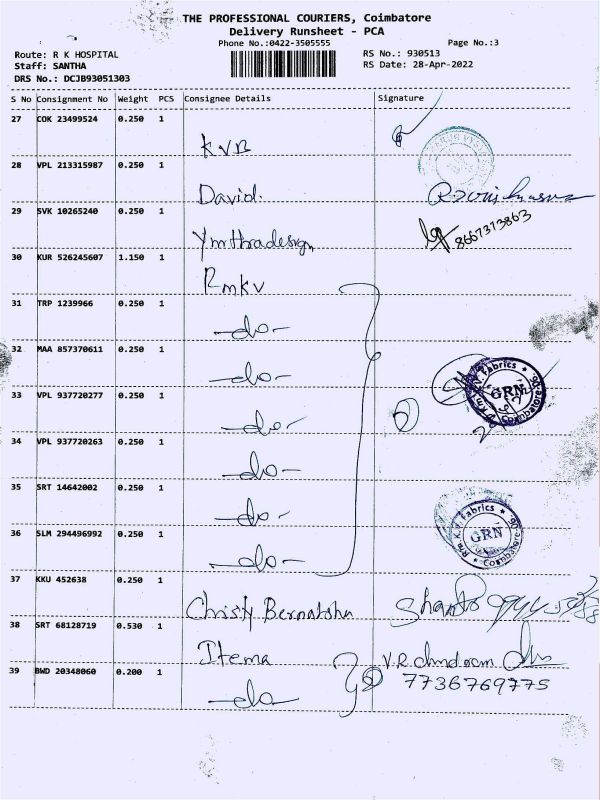 THE PROFESSIONAL COURIERS, Coimbatore
Delivery Runsheet - PCA
Phone No.:0422-3505555
Page No.:3
Route: R K HOSPITAL
RS No.: 930513
Staff: SANTHA
RS Date: 28-Apr-2022
DRS No.: DCJB93051303
S No Consignment No Weight PCS Consignee Details Signature
27 COK 23499524 0.250 1
KVB
28 VPL 213315987 0.250 1
David.
29 SVK 10265240 0.250 1
8667373863
30 KUR 526245607 1.150 1
Rmkv
31 TRP 1239966 0.250 1
-do-
32 MAA 857370611 0.250 1
-do-
Rm.K.V. Fabrics
GRN
Coimbatore
33 VPL 937720277 0.250 1
-do-
34 VPL 937720263 0.250 1
-do-
35 SRT 14642002 0.250 1
-do-
36 SLM 294496992 0.250 1
-do-
Rm.K.V. Fabrics
GRN
Coimbatore
37 KKU 452638 0.250 1
Christy
38 SRT 68128719 0.530 1
Itema
39 BWD 20348060 0.200 1
-do-
7736769775